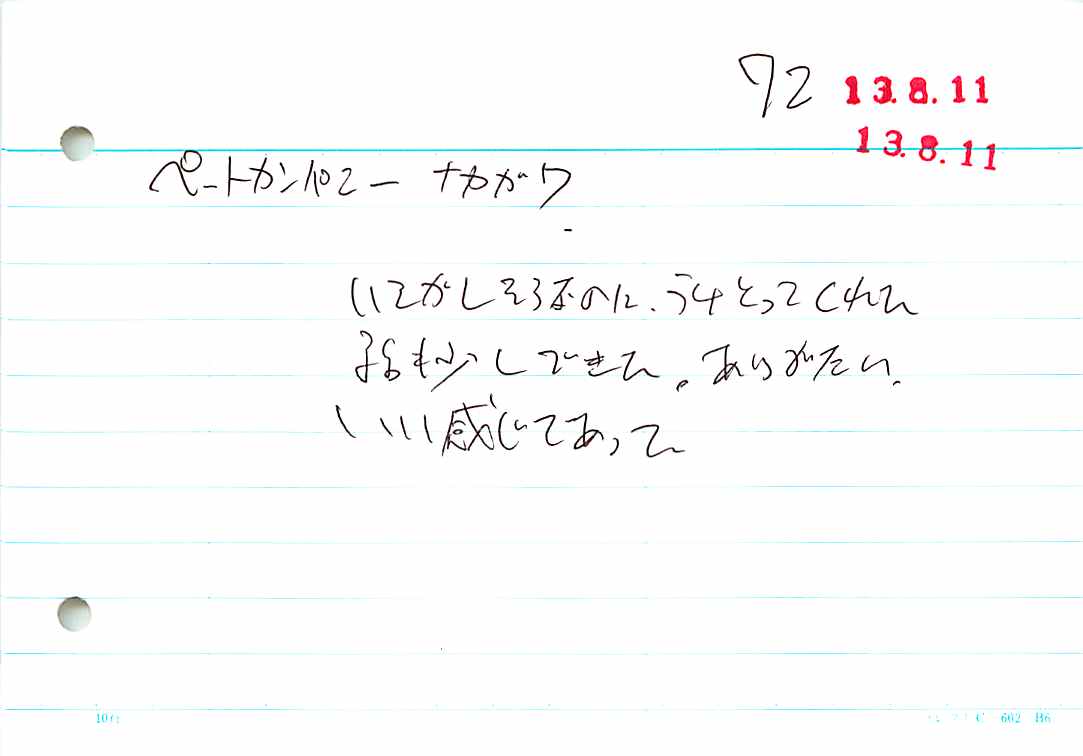 72 13.8.11
13.8.11
ペートカンパニー ナカガワ
いそがしそうなのに、うけとってくれた
話も少しできた。ありがたい。
いい感じであった
10行
C 602 B6